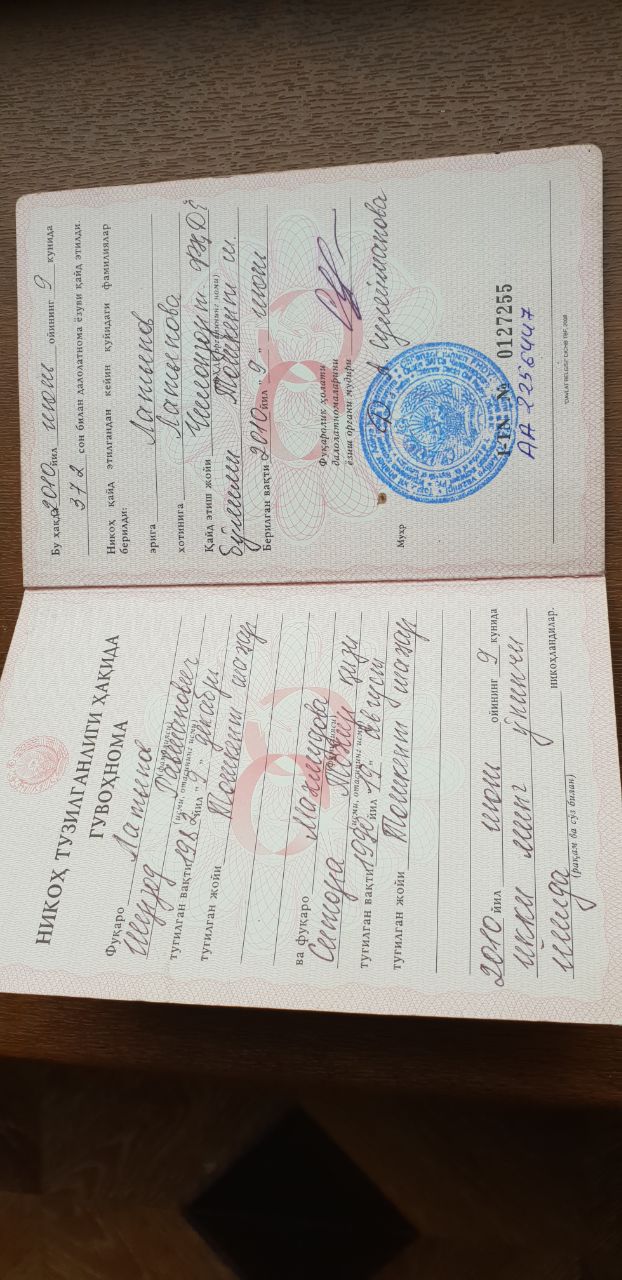 НИКОҲ ТУЗИЛГАНЛИГИ ҲАҚИДА
ГУВОҲНОМА
Фуқаро Латипов
(фамилияси)
Шерзод Равшанович
(исми, отасининг исми)
туғилган вақти 1982 йил „9„ декабр
туғилган жойи Тошкент шаҳар
ва фуқаро Махмудова
(фамилияси)
Ситора қизи
(исми, отасининг исми)
туғилган вақти 1990 йил „19„ август
туғилган жойи Тошкент шаҳар
2010 йил июнь ойининг 9 кунида
икки минг ўнинчи
йилда
(рақам ва сўз билан)
никоҳландилар.
Бу ҳақда 2010 йил июнь ойининг 9 кунида
372 сон билан далолатнома ёзуви қайд этилди.
Никоҳ қайд этилгандан кейин қуйидаги фамилиялар
берилди:
эрига Латипов
хотинига Латипова
Қайд этиш жойи ФҲДЁ
(ФҲДЁ органининг номи)
бўлими Тошкент ш.
Берилган вақти 2010 йил „9„ июнь
Фуқаролик ҳолати
далолатномаларини
ёзиш органи мудири
Сулейманова
Муҳр
FTN № 0127255
АА 2256447